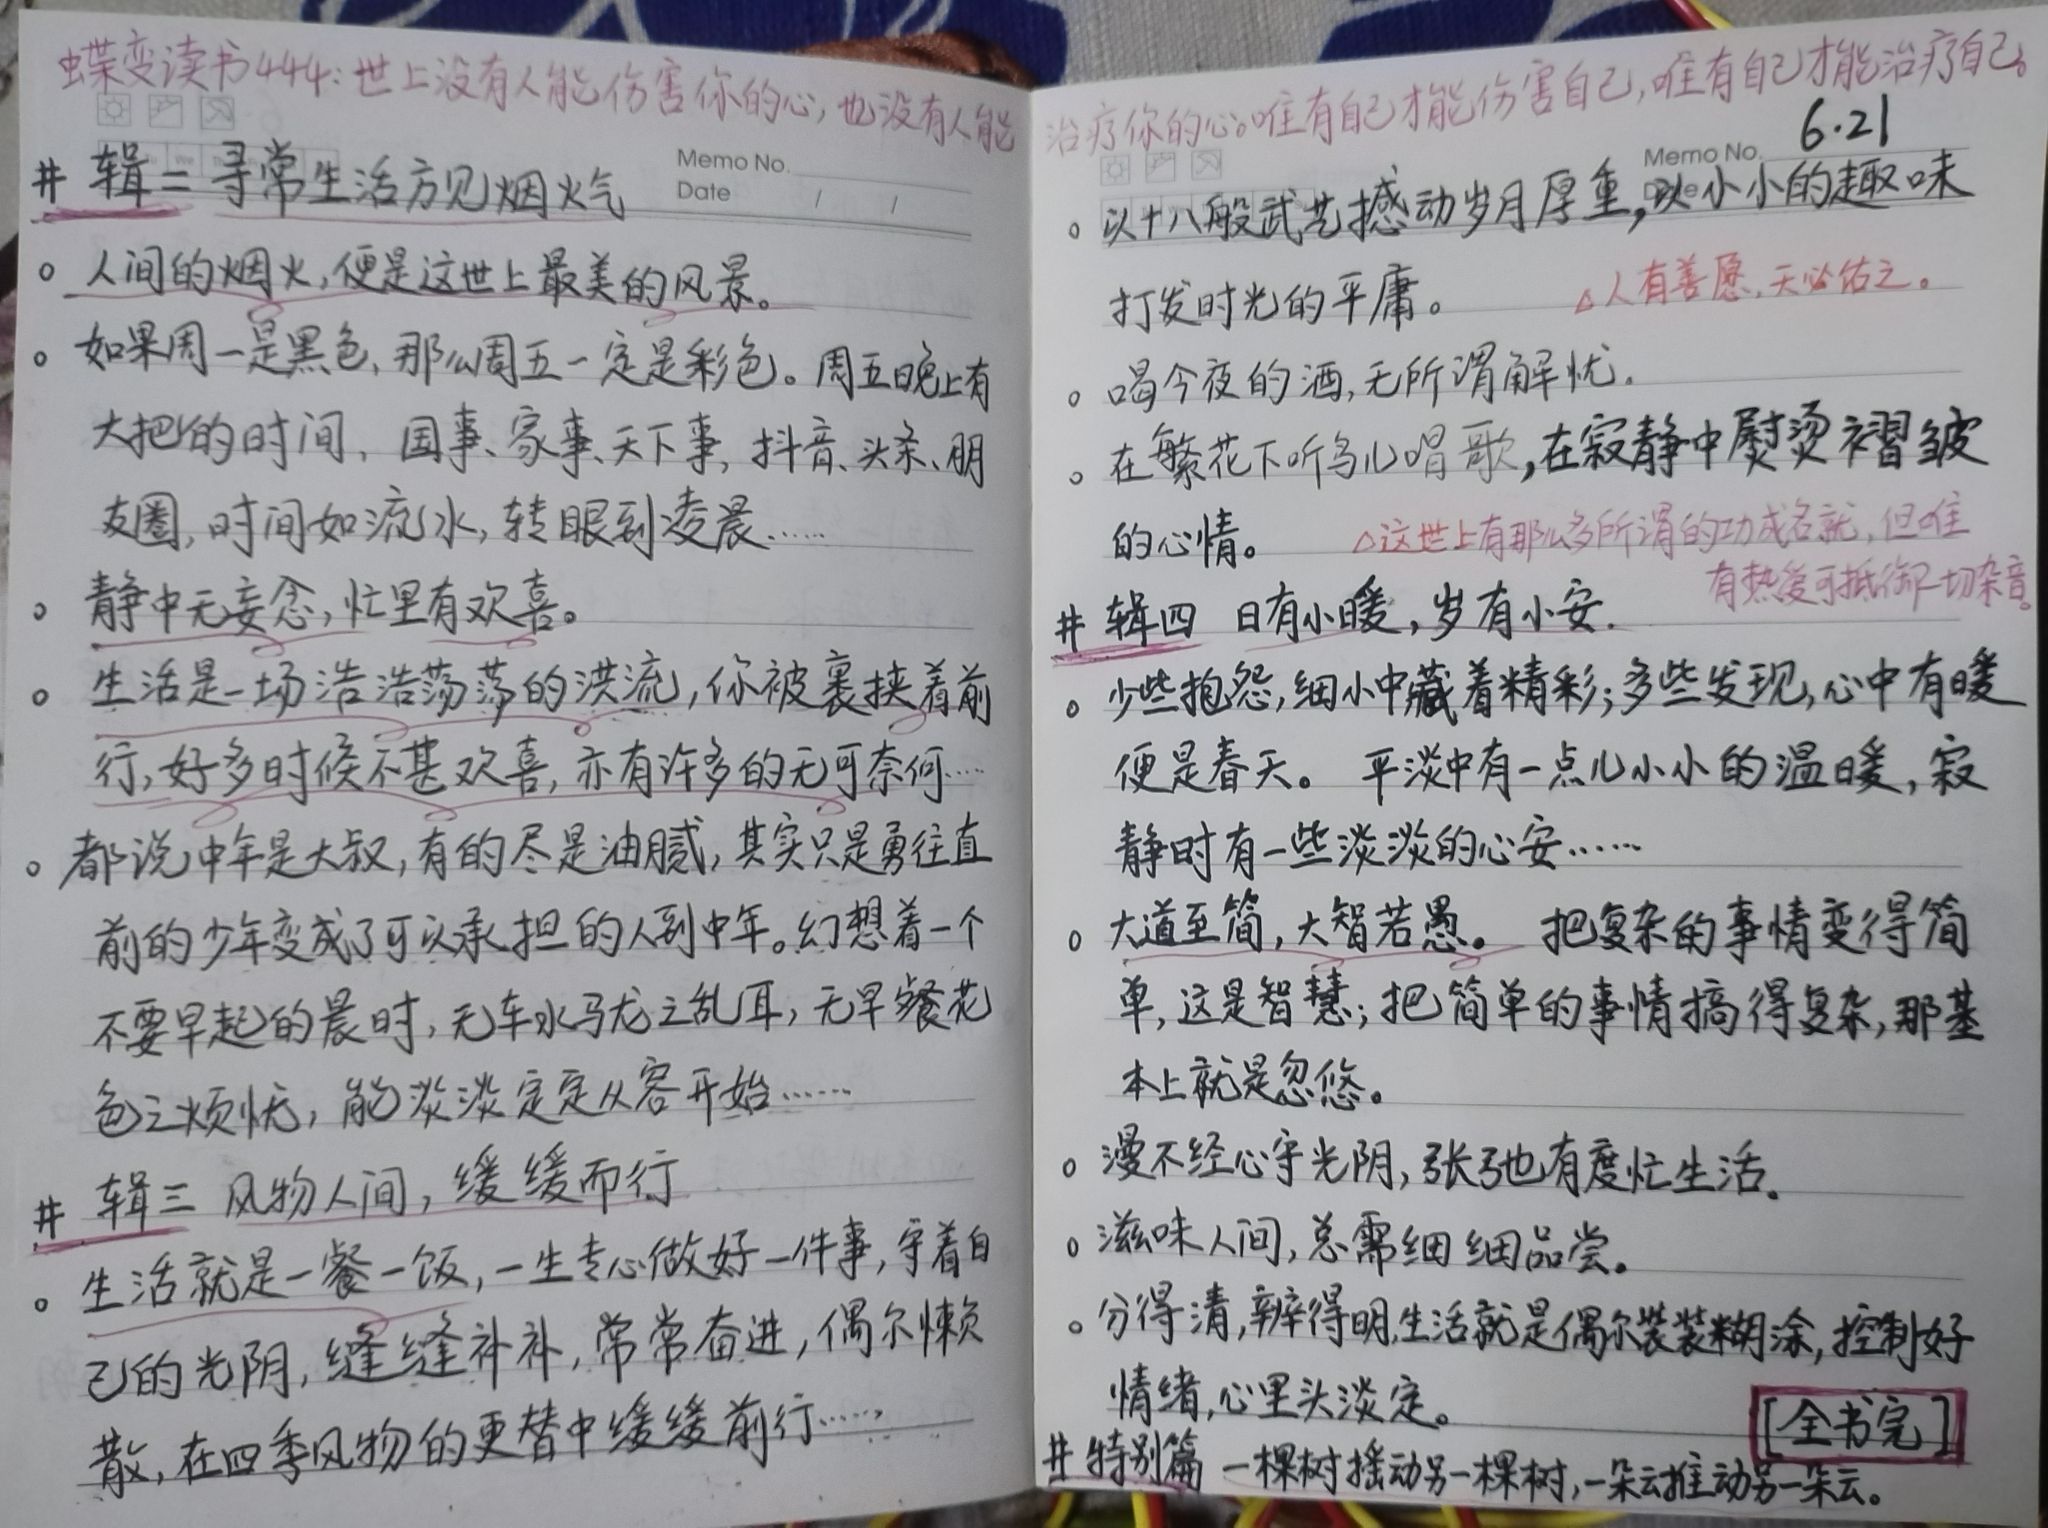 蝶变读书444：世上没有人能伤害你的心，也没有人能
Memo No.
Date / /
# 辑二 寻常生活方见烟火气
。人间的烟火，便是这世上最美的风景。
。如果周一是黑色，那么周五一定是彩色。周五晚上有
大把的时间，国事、家事、天下事，抖音、头条、朋
友圈，时间如流水，转眼到凌晨……
。静中无妄念，忙里有欢喜。
。生活是一场浩浩荡荡的洪流，你被裹挟着前
行，好多时候不甚欢喜，亦有许多的无可奈何……
。都说中年是大叔，有的尽是油腻，其实只是勇往直
前的少年变成了可以承担的人到中年。幻想着一个
不要早起的晨时，无车水马龙之乱耳，无早餐花
色之烦忧，能淡淡定定从容开始……
# 辑三 风物人间，缓缓而行
。生活就是一餐一饭，一生专心做好一件事，守着自
己的光阴，缝缝补补，常常奋进，偶尔懒
散，在四季风物的更替中缓缓前行……
治疗你的心。唯有自己才能伤害自己，唯有自己才能治疗自己。
6.21
Memo No.
。以十八般武艺撼动岁月厚重，以小小的趣味
打发时光的平庸。
△人有善愿，天必佑之。
。喝今夜的酒，无所谓解忧。
。在繁花下听鸟儿唱歌，在寂静中熨烫褶皱
的心情。
△这世上有那么多所谓的功成名就，但唯
有热爱可抵御一切杂音。
# 辑四 日有小暖，岁有小安.
。少些抱怨，细小中藏着精彩；多些发现，心中有暖
便是春天。 平淡中有一点儿小小的温暖，寂
静时有一些淡淡的心安……
。大道至简，大智若愚。 把复杂的事情变得简
单，这是智慧；把简单的事情搞得复杂，那基
本上就是忽悠。
。漫不经心守光阴，张弛有度忙生活。
。滋味人间，总需细细品尝。
。分得清，辨得明，生活就是偶尔装装糊涂，控制好
情绪，心里头淡定。
[全书完]
# 特别篇 一棵树摇动另一棵树，一朵云推动另一朵云。